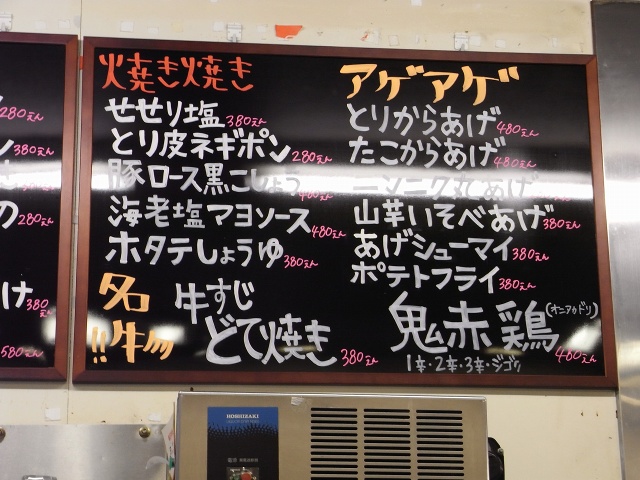 焼き焼き
せせり塩 380えん
とり皮ネギポン 280えん
豚ロース黒こしょう 480えん
海老塩マヨソース 480えん
ホタテしょうゆ 380えん
名
牛
!!
牛すじ
どて焼き 380えん
アゲアゲ
とりからあげ 480えん
たこからあげ 480えん
ニンニク丸あげ
山芋いそべあげ 380えん
あげシューマイ 380えん
ポテトフライ 380えん
鬼赤鶏 (オニアカドリ) 480えん
1辛・2辛・3辛・ジゴリ
280えん
380えん
の 280えん
け 380えん
580えん
HOSHIZAKI